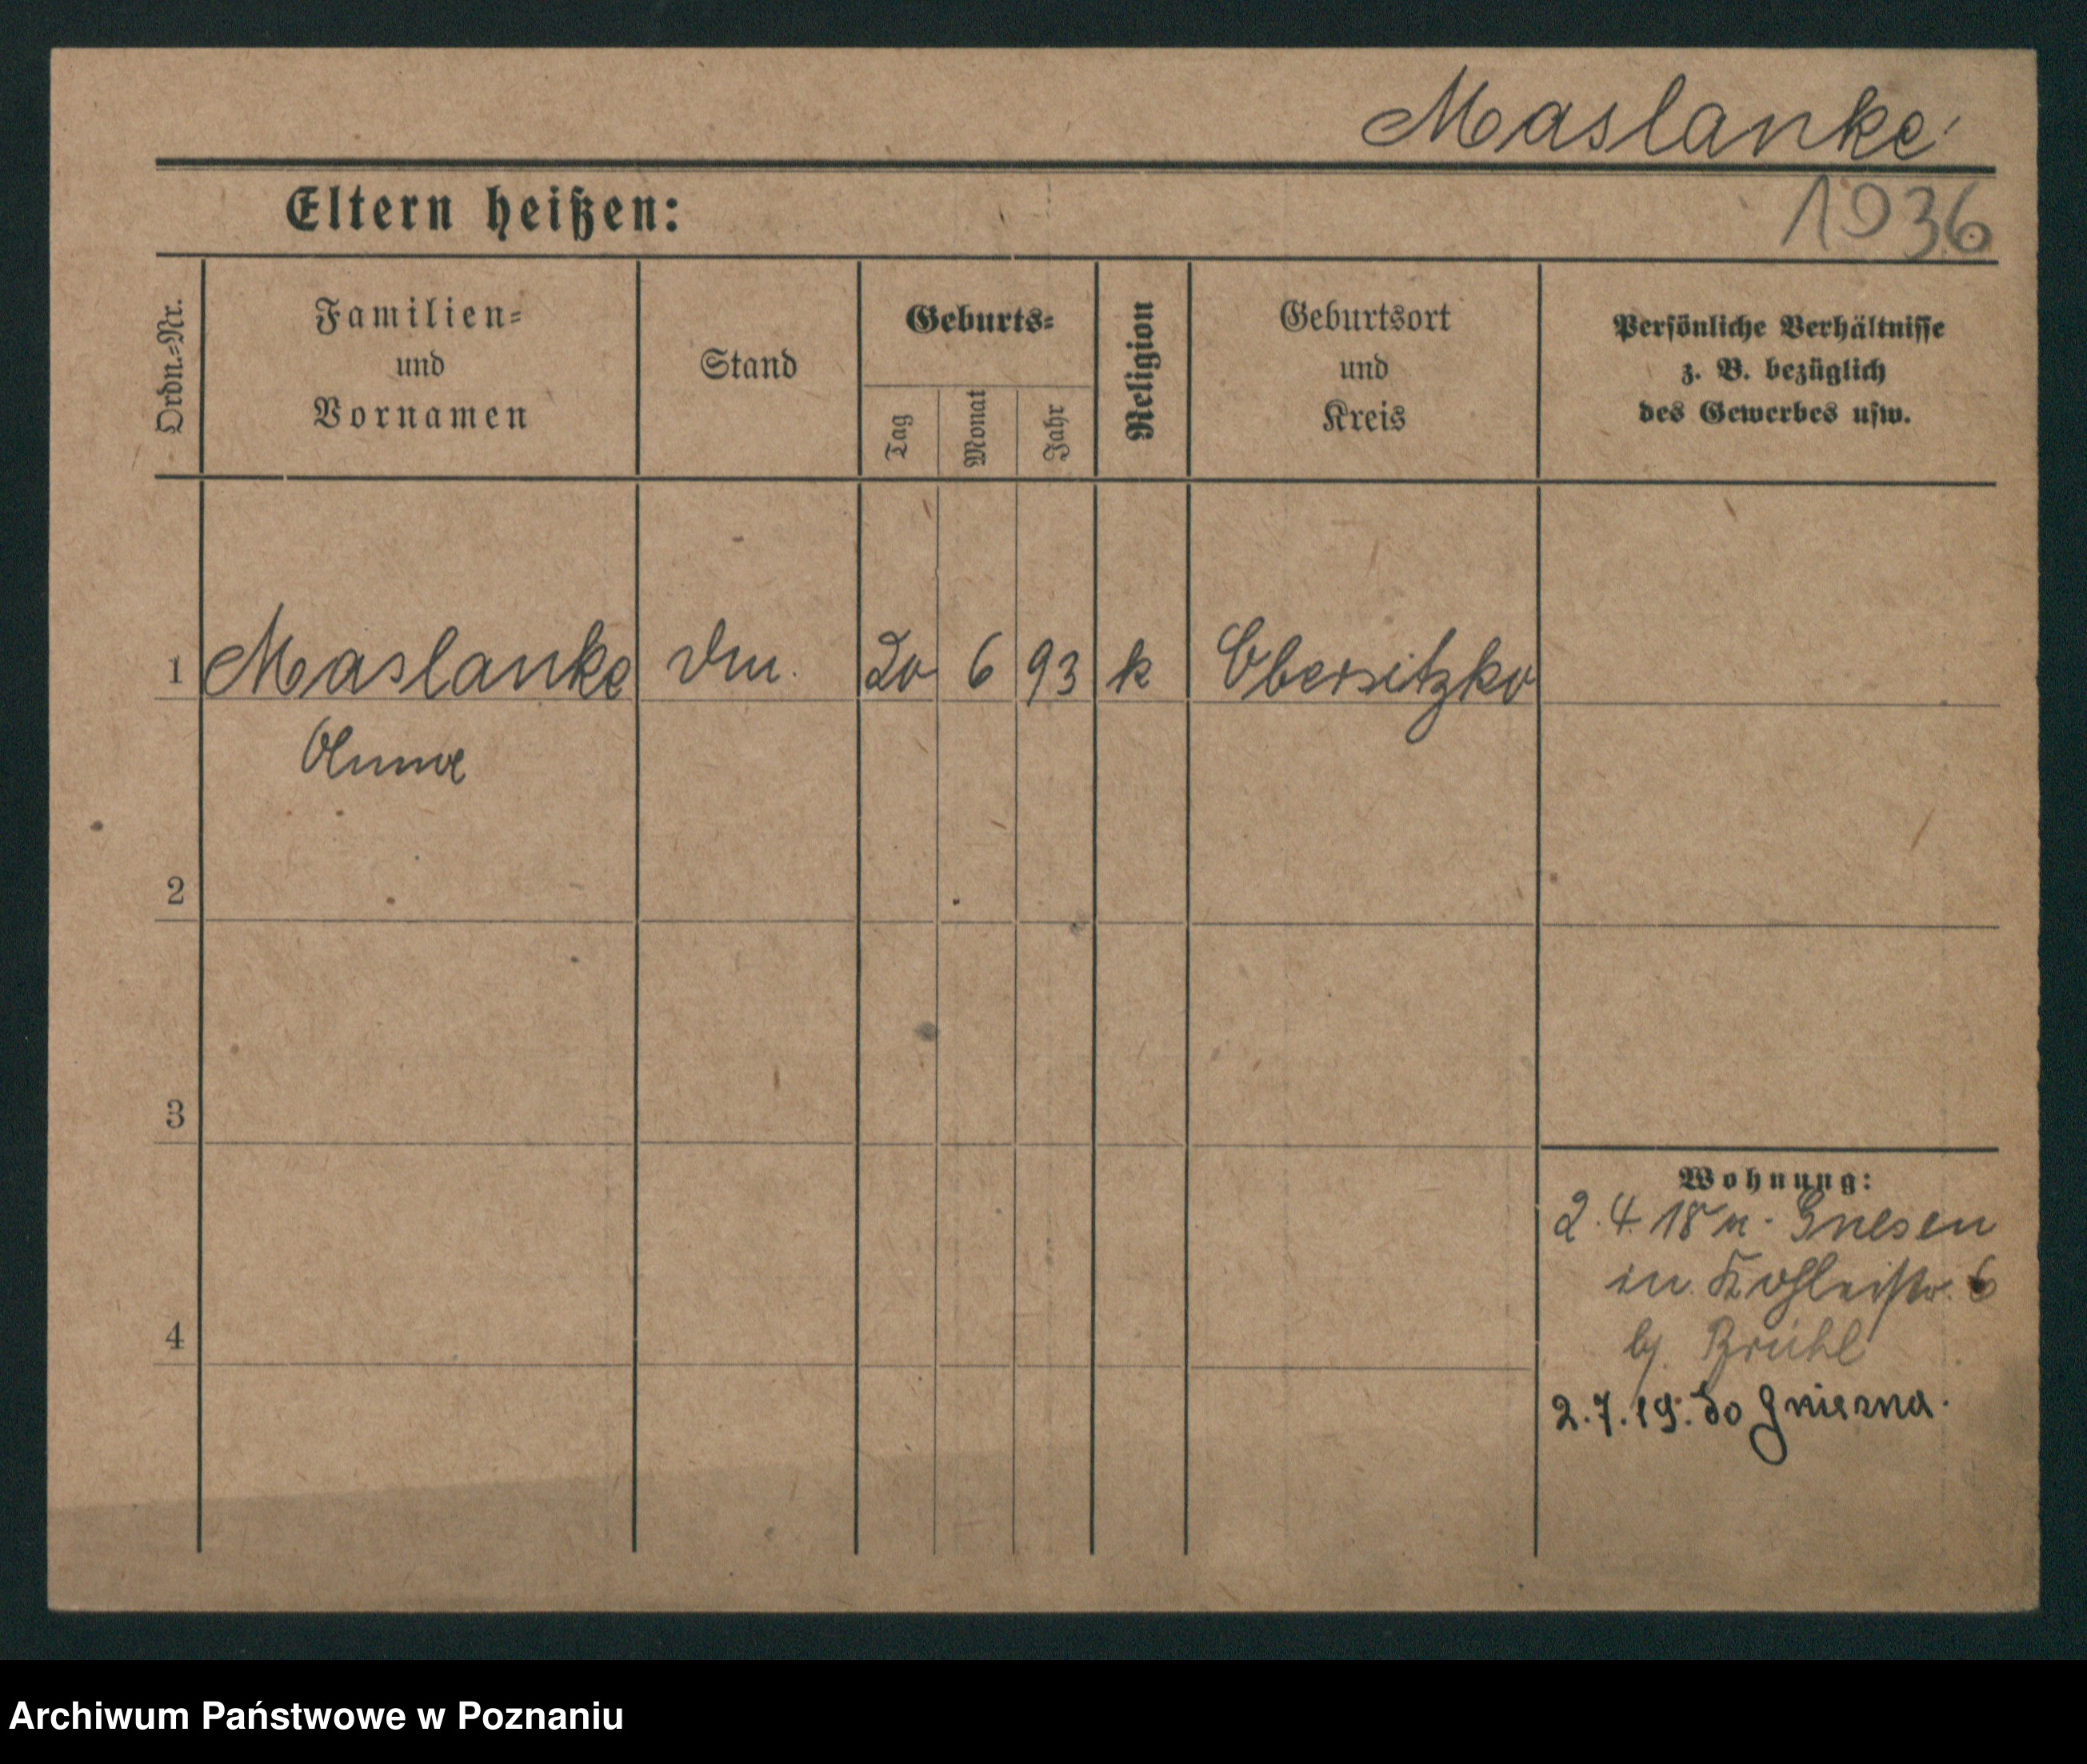 Maslanke
1936
Eltern heißen:
Ordn.-Nr.
Familien-
und
Vornamen
Stand
Geburts-
Tag
Monat
Jahr
Religion
Geburtsort
und
Kreis
Persönliche Verhältnisse
z. B. bezüglich
des Gewerbes usw.
1 Maslanke 20 6 93 k Obersitzko
Anna
2
3
4
Wohnung:
2.4.18 n. Gnesen
in 6
bj. Brühl
2.7.19. do Gniezna.
Archiwum Państwowe w Poznaniu